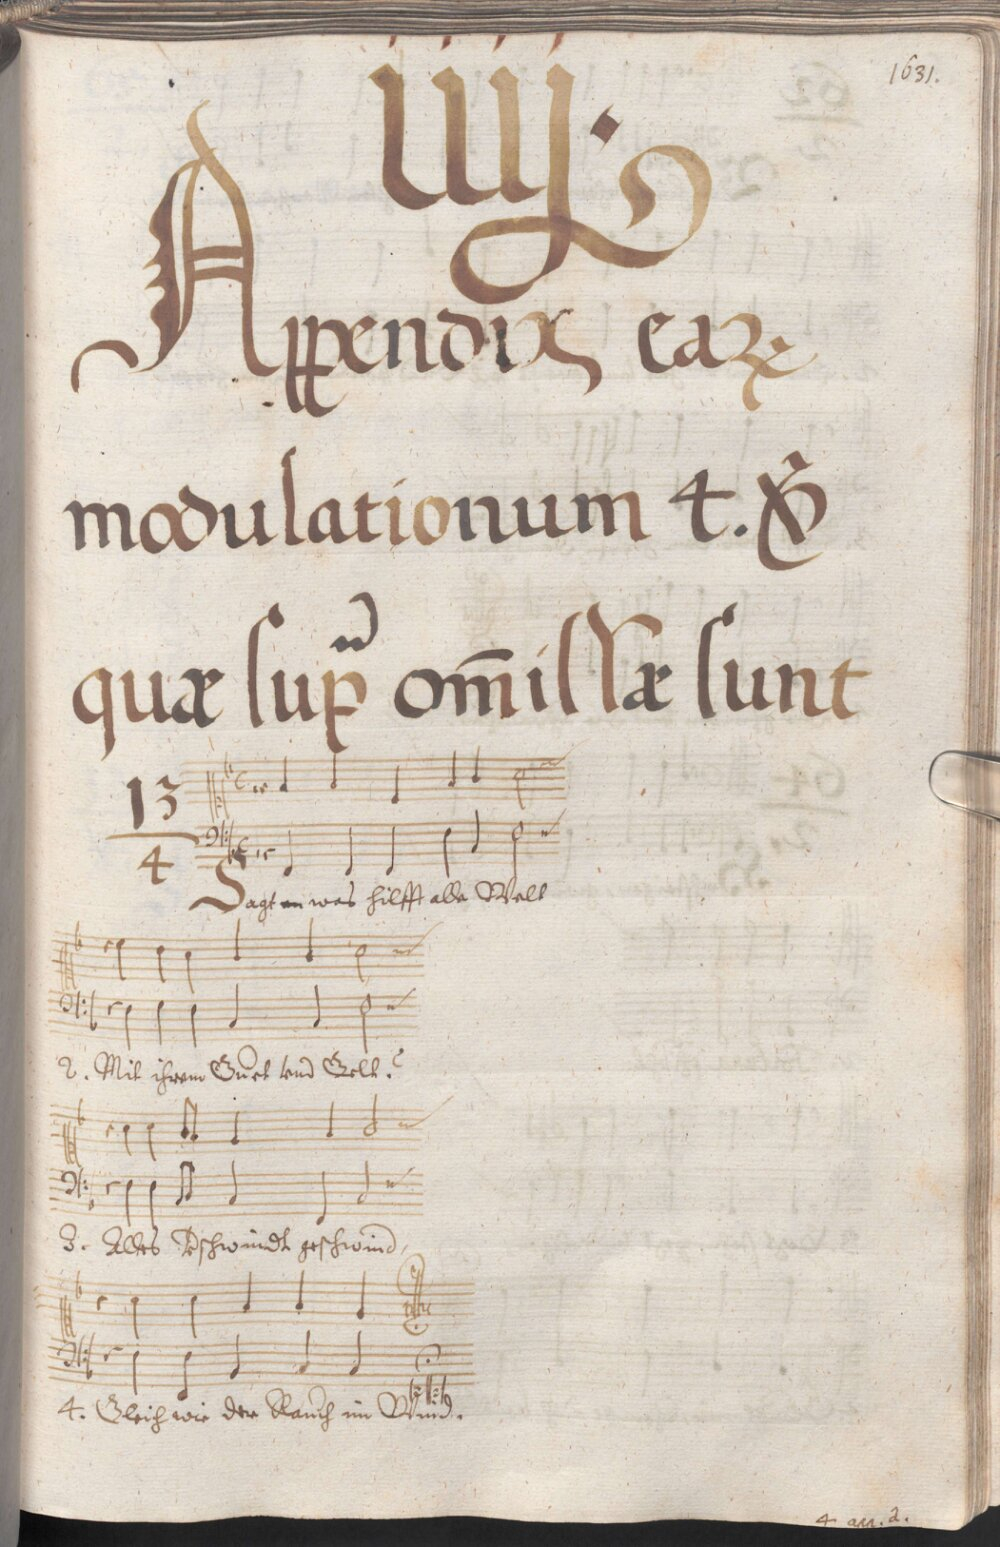 1631.
iiij.
Appendix eaꝝ
modulationum 4.
quæ sup omissæ sunt
13
4
Sagt an was hilfft alle Welt
2. Mit ihrem Guet vnd Gelt?
3. Alles Vschwindt geschwind,
4. Gleich wie der Rauch im Wind.